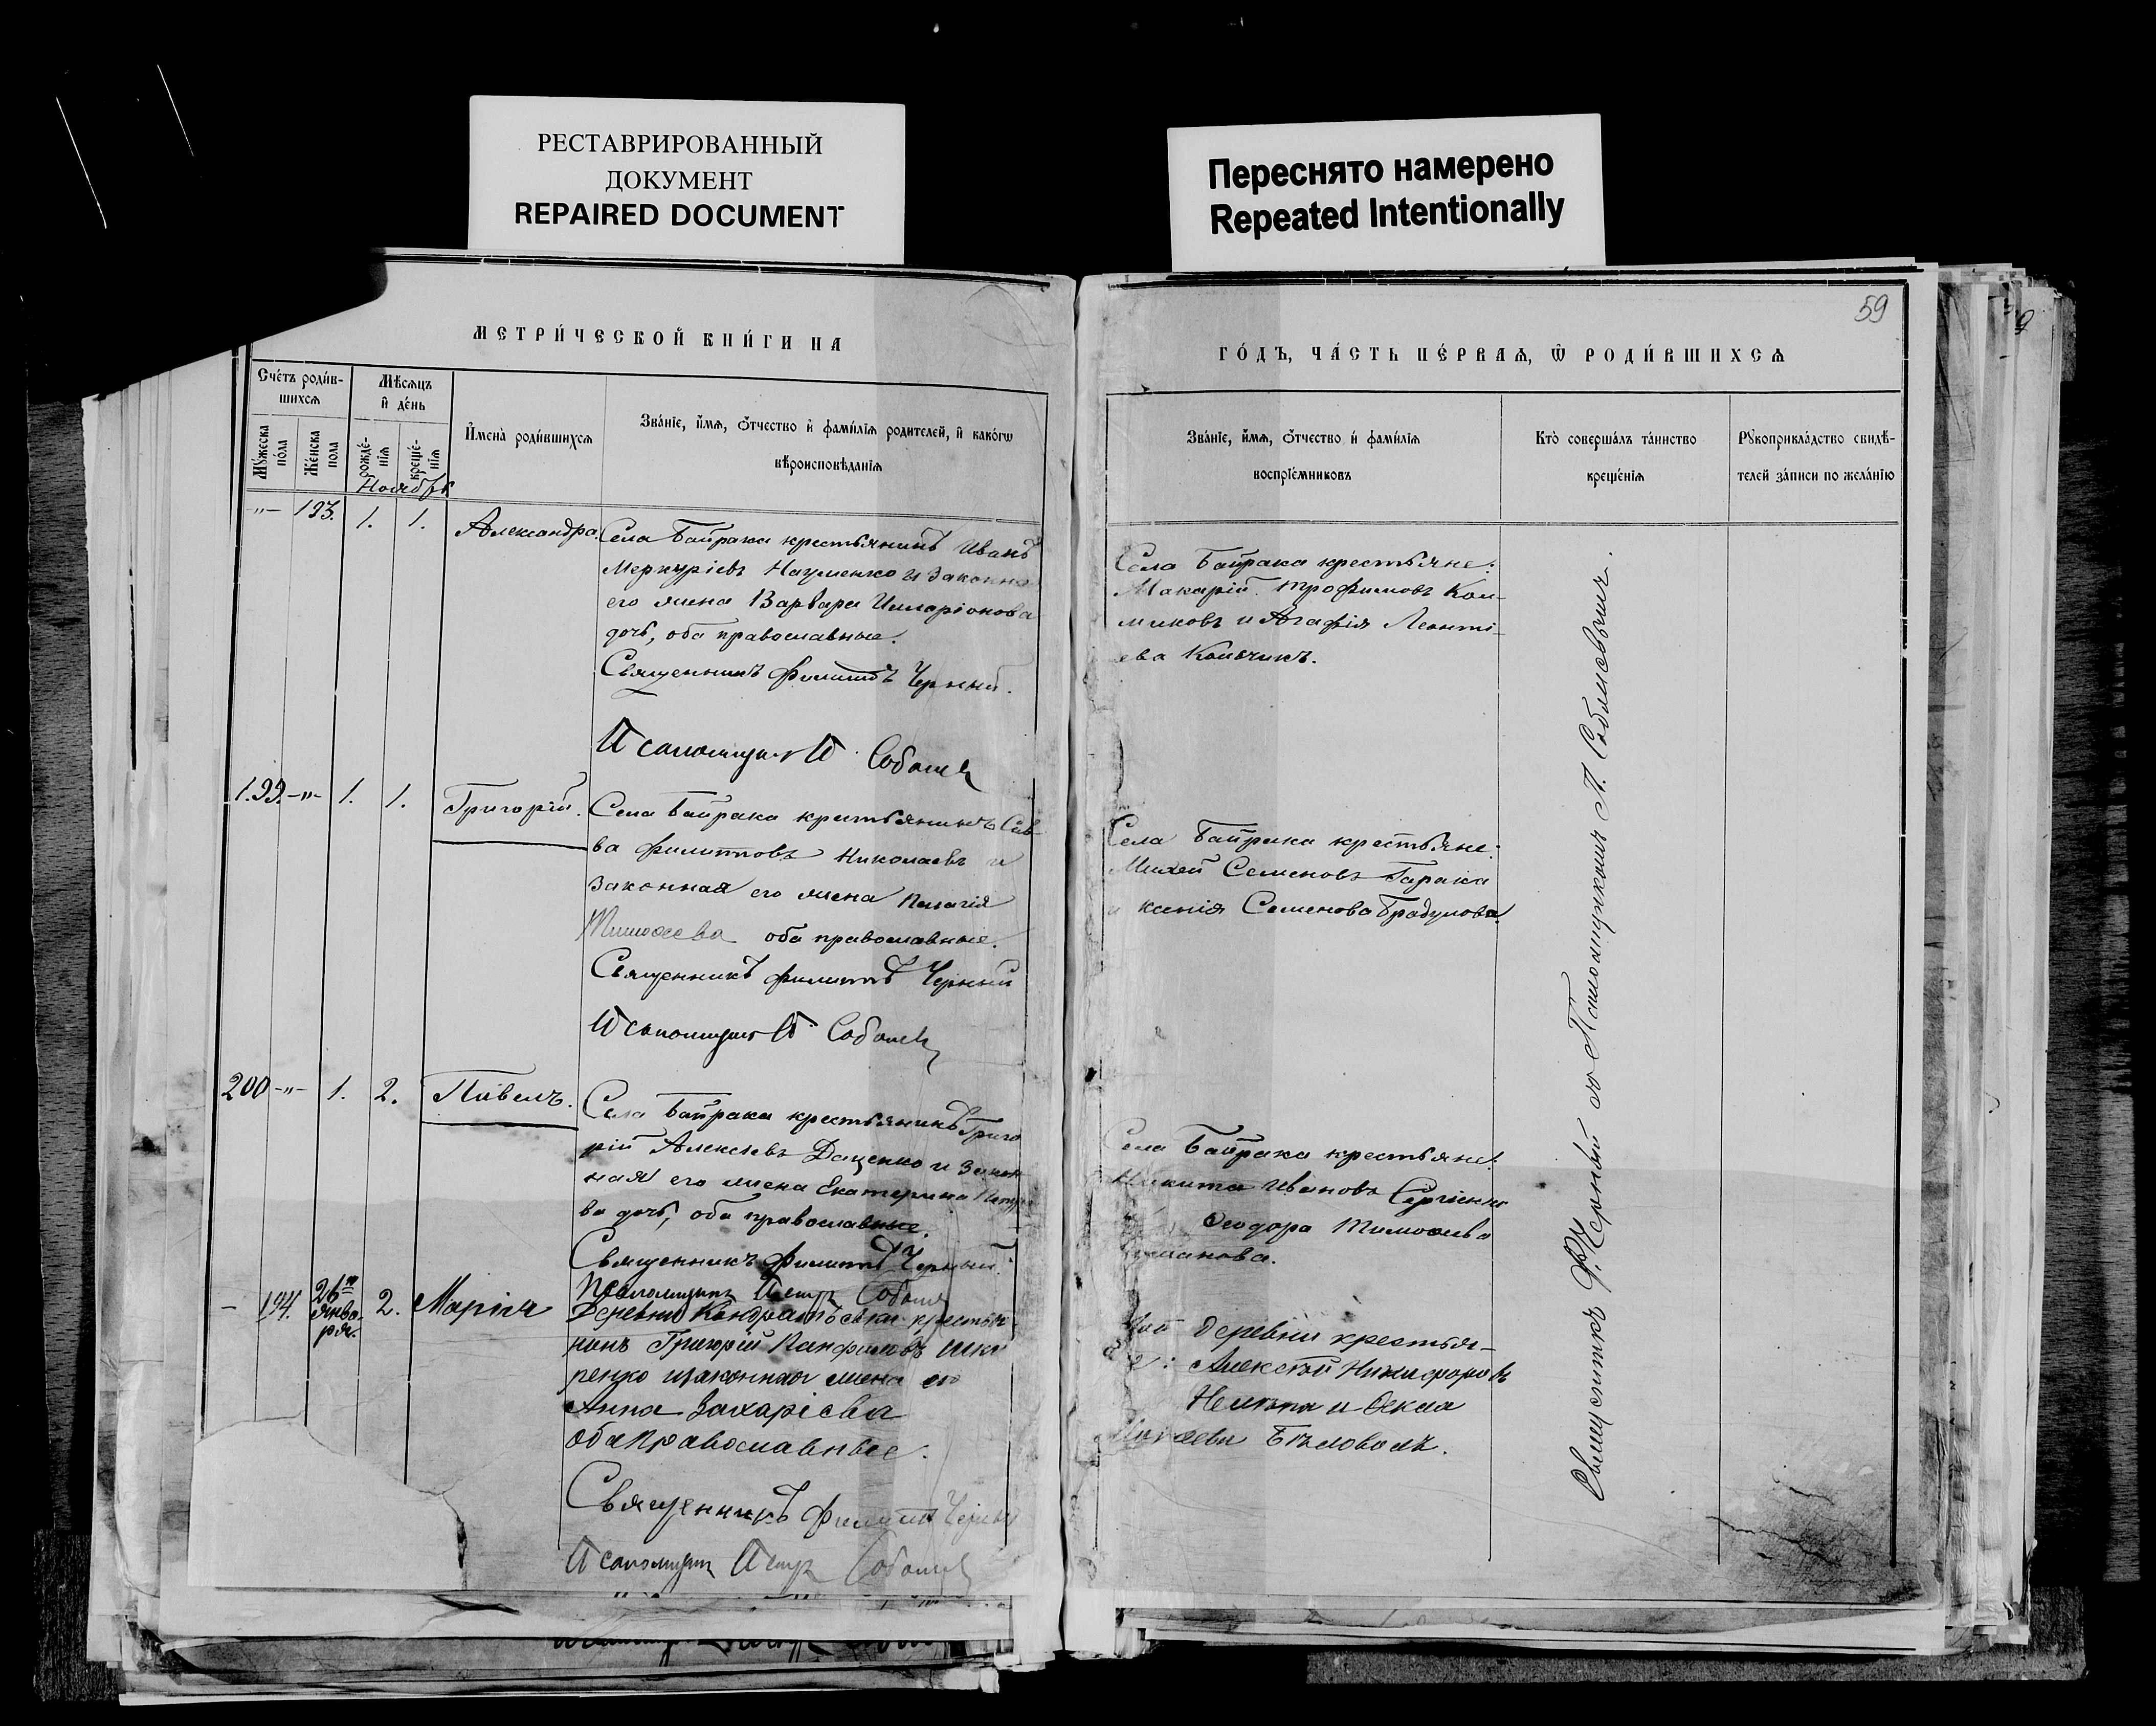 РЕСТАВРИРОВАННЫЙ
ДОКУМЕНТ
REPAIRED DOCUMENT
Переснято намерено
Repeated Intentionally
59
МЕТРИ́ЧЕСКОЙ КНИ́ГИ НА
Сче́тъ роди́в-
шихсѧ
Мѣсѧцъ
и҆ де́нь
Мꙋ́жеска
по́ла
Же́нска
пола
рожде́-
нїѧ
креще́-
нїѧ
И҆мена̀ роди́вшихсѧ
Зва́нїе, и҆́мѧ, ѻ҆́тчество и҆ фами́лїѧ родителей, и҆ како́гѡ
вѣроисповѣ́данїѧ
Ноябрь
-"- 193. 1. 1. Александра.
Села Байрака крестьянинъ Иванъ
Меркуріевъ Науменко и законна
его жена Варвара Илларіонова
дочь, оба православные.
Священникъ Филиппъ Черный.
Псаломщикъ П Соболев
199. -"- 1. 1. Григорій.
Села Байрака крестьянинъ Сав-
ва Филипповъ Николаевъ и
законная его жена Пелагія
Тимоѳеева оба православные.
Священникъ Филиппъ Черный
Псаломщикъ П Соболев
200 -"- 1. 2. Павелъ.
Села Байрака крестьянинъ Григо
рій Алексѣевъ Даценко и закон
ная его жена Екатерина
ва дочь, оба православные.
Священникъ Филиппъ Черный.
Псаломщикъ Петръ Соболев
- 194. 26го
Янва-
ря. 2. Марія
Деревни Кондратьевки крестья
нинъ Григорій Панфиловъ
ренко изаконная жена его
Анна Захаріева
оба православные.
Священникъ Филиппъ Черный
Псаломщикъ Петръ Соболев
ГО́ДЪ, ЧА́СТЬ ПЕ́РВАѦ, Ѡ҆ РОДИ́ВШИХСѦ
Зва́нїе, и҆́мѧ, ѻ҆́тчество и҆ фами́лїѧ
воспрїе́мниковъ
Кто̀ соверша́лъ та́инство
креще́нїѧ
Рꙋкоприкла́дство свидѣ́-
телей за́писи по жела́нїю
Села Байрака крестьяне:
Макарій Трофимовъ Кол-
миковъ и Агафія Леонті-
ева Кольчикъ.
Села Байрака крестьяне:
Михей Семеновъ Гарака
и Ксенія Семенова
Села Байрака крестьяне:
Никита Ивановъ Сергіенко
Ѳеодора Тимоѳеева
деревни крестья-
е: Алексѣй Никифоровъ
и Ѳекла
Бѣловолъ.
Священникъ Ф. Черный со Псаломщикомъ П. Соболевымъ.